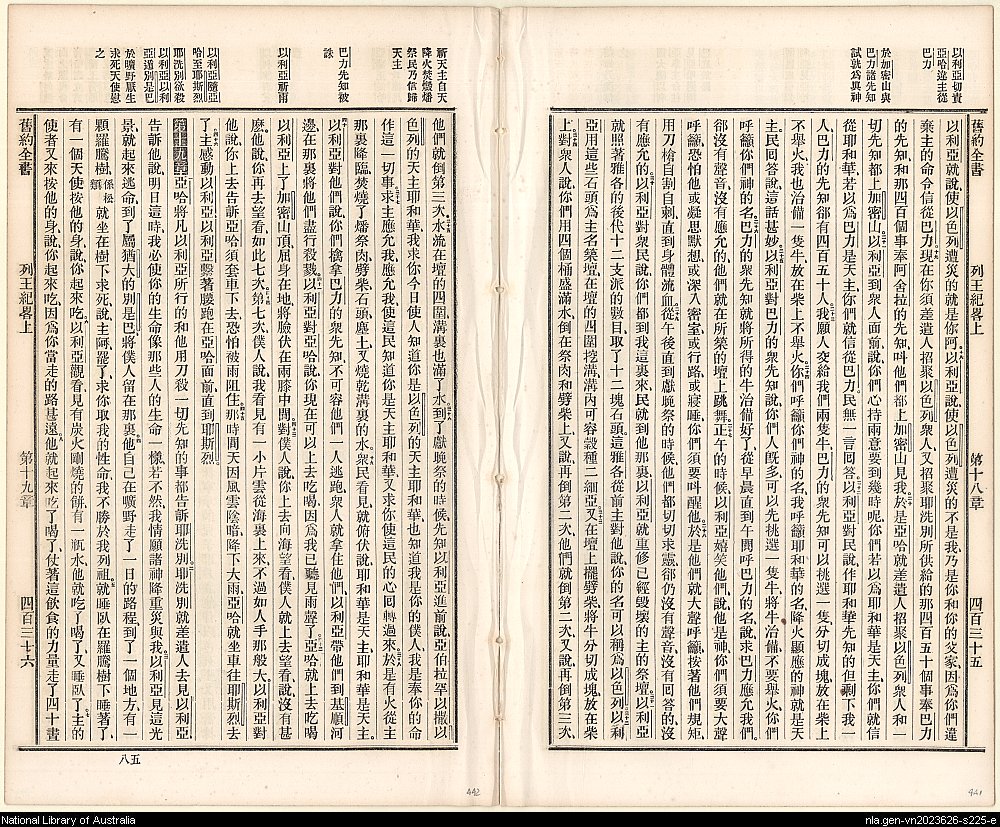 以利亞切責
亞哈違主從
巴力
於加密山與
巴力諸先知
試孰為眞神
舊約全書 列王紀畧上 第十八章 四百三十五
以利亞就說使以色列遭災的就是你阿以利亞說使以色列遭災的不是我乃是你和你的父家因為你們違
棄主的命令信從巴力現在你須差遣人招聚以色列眾人又招聚耶洗別所供給的那四百五十個事奉巴力
的先知和那四百個事奉阿舍拉的先知叫他們都上加密山見我於是亞哈就差遣人招聚以色列眾人和一
切先知都上加密山以利亞到眾人面前說你們心持兩意要到幾時呢你們若以為耶和華是天主你們就信
從耶和華若以為巴力是天主你們就信從巴力民無一言回答以利亞對民說作耶和華先知的但剩下我一
人巴力的先知卻有四百五十人我願人交給我們兩隻牛巴力的眾先知可以挑選一隻分切成塊放在柴上
不舉火我也治備一隻牛放在柴上不舉火你們呼籲你們神的名我呼籲耶和華的名降火顯應的神就是天
主民回答說這話甚妙以利亞對巴力的眾先知說你們人旣多可以先挑選一隻牛將牛治備不要舉火你們
呼籲你們神的名巴力的眾先知就將所得的牛治備好了從早晨直到午間呼巴力的名說求巴力應允我們
卻沒有聲音沒有應允的他們就在所築的壇上跳舞正午的時候以利亞嬉笑他們說他是神你們須要大聲
呼籲恐怕他或凝思默想或深入密室或行路或寢睡你們須要呌醒他於是他們就大聲呼籲按著他們規矩
用刀槍自割自刺直到身體流血從午後直到獻晚祭的時候他們都切切求靈卻仍沒有聲音沒有回答的沒
有應允的以利亞對眾民說你們都到我這裏來民就到他那裏以利亞就重修已經毀壞的主的祭壇以利亞
就照著雅各的後代十二支派的數目取了十二塊石頭這雅各從前主對他說你的名可以稱為以色列以利
亞用這些石頭為主名築壇在壇的四圍挖溝溝內可容穀種二細亞又在壇上擺劈柴將牛分切成塊放在柴
上對眾人說你們用四個桶盛滿水倒在祭肉和劈柴上又說再倒第二次他們就倒第二次又說再倒第三次
祈天主自天
降火焚燬燔
祭民乃信歸
天主
巴力先知被
誅
以利亞祈雨
以利亞隨亞
哈至耶斯烈
耶洗別欲殺
以利亞以利
亞遁別是巴
於曠野厭生
求死天使慰
之
他們就倒第三次水流在壇的四圍溝裏也滿了水到了獻晚祭的時候先知以利亞進前說亞伯拉罕以撒以
色列的天主耶和華我求你今日使人知道你是以色列的天主耶和華也知道我是你的僕人我是奉你的命
作這一切事求主應允我應允我使這民知道你是天主耶和華又求你使這民的心回轉過來於是有火從主
那裏降臨焚燒了燔祭肉劈柴石頭塵土又燒乾溝裏的水眾民看見就俯伏說耶和華是天主耶和華是天主
以利亞對他們說你們擒拿巴力的眾先知不可容他們一人逃跑眾人就拿住他們以利亞帶他們到基順河
邊在那裏將他們盡行殺戮以利亞對亞哈說你現在可以上去吃喝因為我已聽見雨聲了亞哈就上去吃喝
以利亞上了加密山頂屈身在地將臉伏在兩膝中間對僕人說你上去向海望看僕人就上去望看說沒有甚
麽他說你再去望看如此七次第七次僕人說我看見有一小片雲從海裏上來不過如人手那般大以利亞對
他說你上去告訴亞哈須套車下去恐怕被雨阻住那時間天因風雲陰暗降下大雨亞哈就坐車往耶斯烈去
了主感動以利亞以利亞繫著腰跑在亞哈面前直到耶斯烈
第十九章 亞哈將凡以利亞所行的和他用刀殺一切先知的事都告訴耶洗別耶洗別就差遣人去見以利亞
告訴他說明日這時我必使你的生命像那些人的生命一樣若不然我情願諸神降重災與我以利亞見這光
景就起來逃命到了屬猶大的別是巴將僕人留在那裏他自己在曠野走了一日的路程到了一個地方有一
顆羅騰樹 係松類 就坐在樹下求死說主阿罷了求你取我的性命我不勝於我列祖就睡臥在羅騰樹下睡著了
有一個天使按他的身說你起來吃以利亞觀看見有炭火剛燒的餅有一瓶水他就吃了喝了又睡臥了主的
使者又來按他的身說你起來吃因為你當走的路甚遠他就起來吃了喝了仗著這飲食的力量走了四十晝
舊約全書 列王紀畧上 第十九章 四百三十六
八五
442
441
National Library of Australia
nla.gen-vn2023626-s225-e